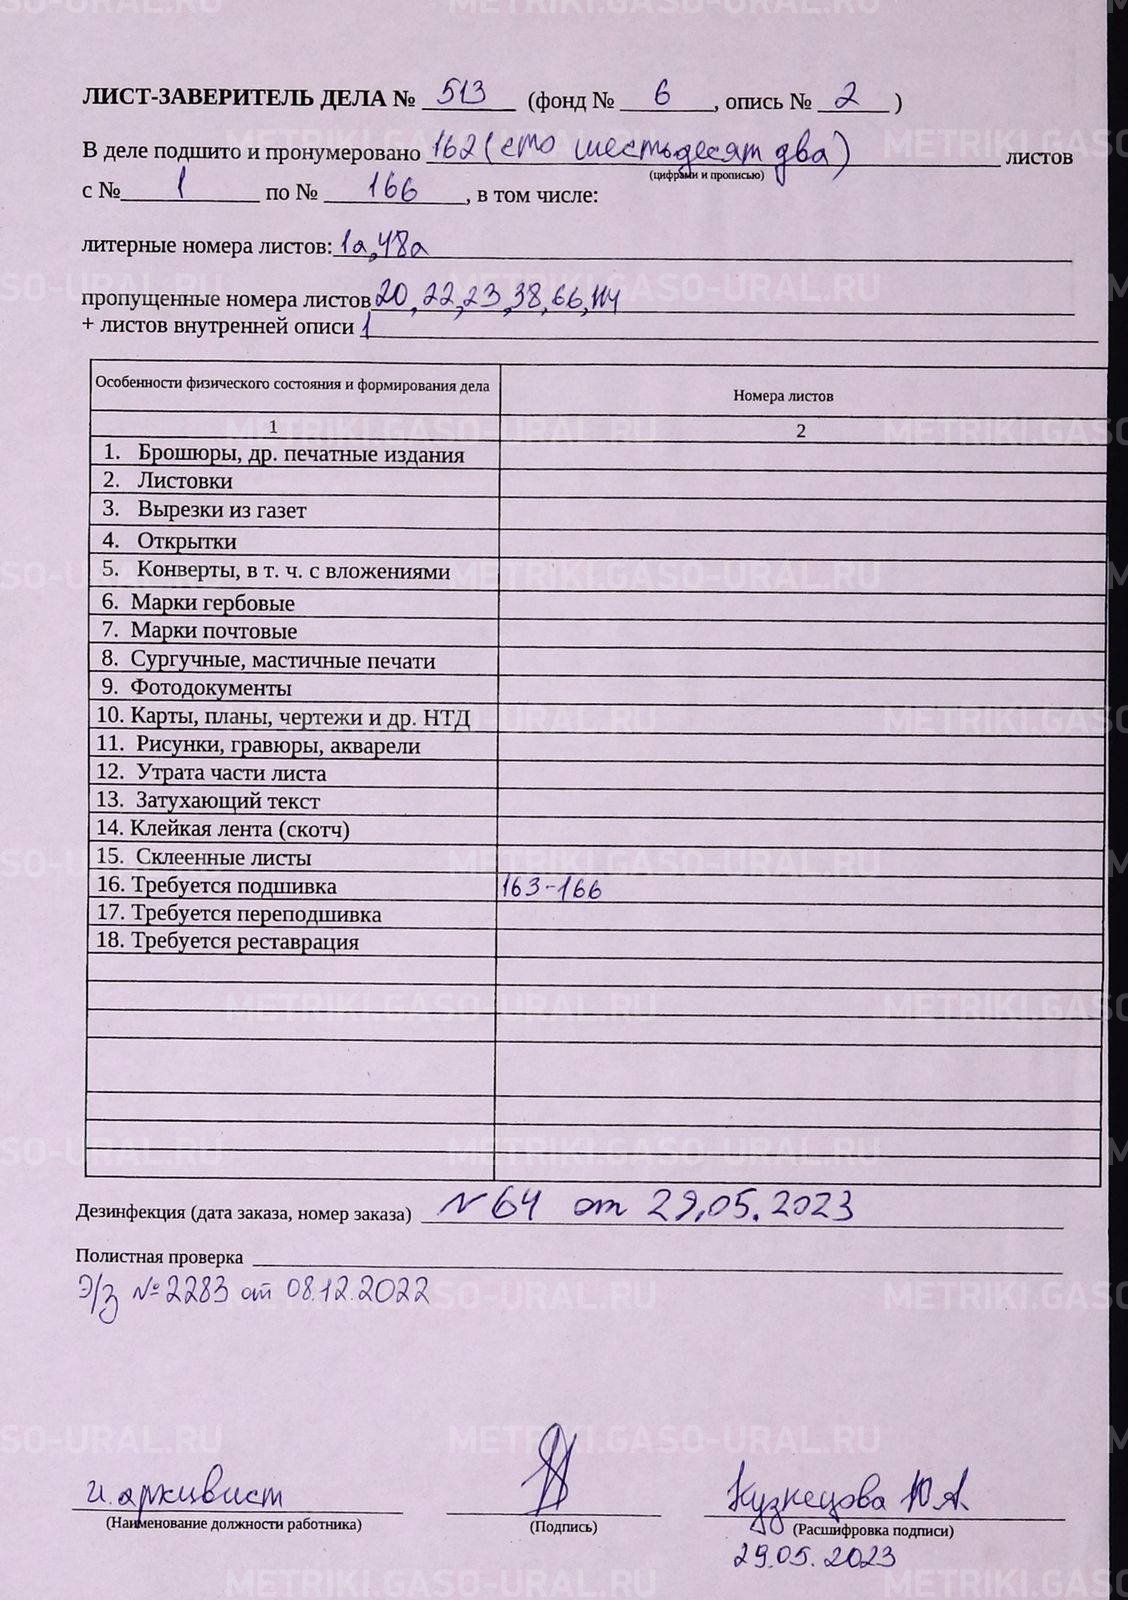 ЛИСТ-ЗАВЕРИТЕЛЬ ДЕЛА № 513 (фонд № 6, опись № 2)
В деле подшито и пронумеровано 162 (сто шестьдесят два) листов
(цифрами и прописью)
с № 1 по № 166, в том числе:
литерные номера листов: 1а, 48а
пропущенные номера листов 20, 22, 23, 38, 66, 114
+ листов внутренней описи 1
Особенности физического состояния и формирования дела Номера листов
1 2
1. Брошюры, др. печатные издания
2. Листовки
3. Вырезки из газет
4. Открытки
5. Конверты, в т. ч. с вложениями
6. Марки гербовые
7. Марки почтовые
8. Сургучные, мастичные печати
9. Фотодокументы
10. Карты, планы, чертежи и др. НТД
11. Рисунки, гравюры, акварели
12. Утрата части листа
13. Затухающий текст
14. Клейкая лента (скотч)
15. Склеенные листы
16. Требуется подшивка 163-166
17. Требуется переподшивка
18. Требуется реставрация
Дезинфекция (дата заказа, номер заказа) № 64 от 29.05.2023
Полистная проверка
Э/з № 2283 от 08.12.2022
архивист Кузнецова Ю.А.
(Наименование должности работника) (Подпись) (Расшифровка подписи)
29.05.2023
METRIKI.GASO-URAL.RU